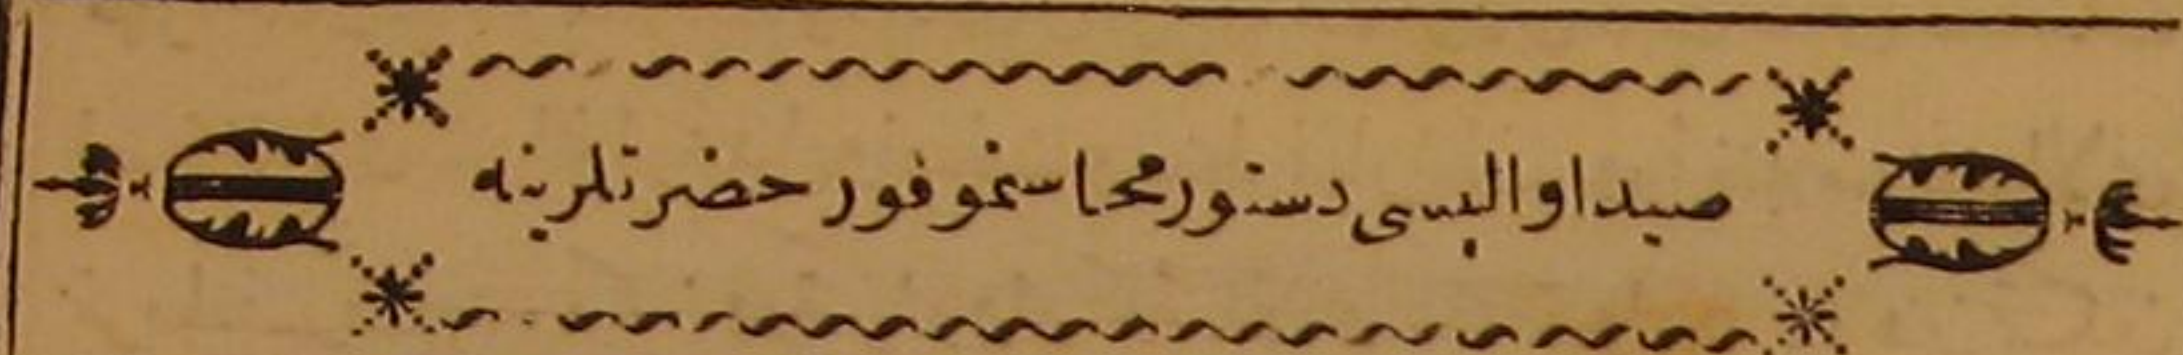 صيدا والیسی دستور محاسنموفور حضرتلرینه